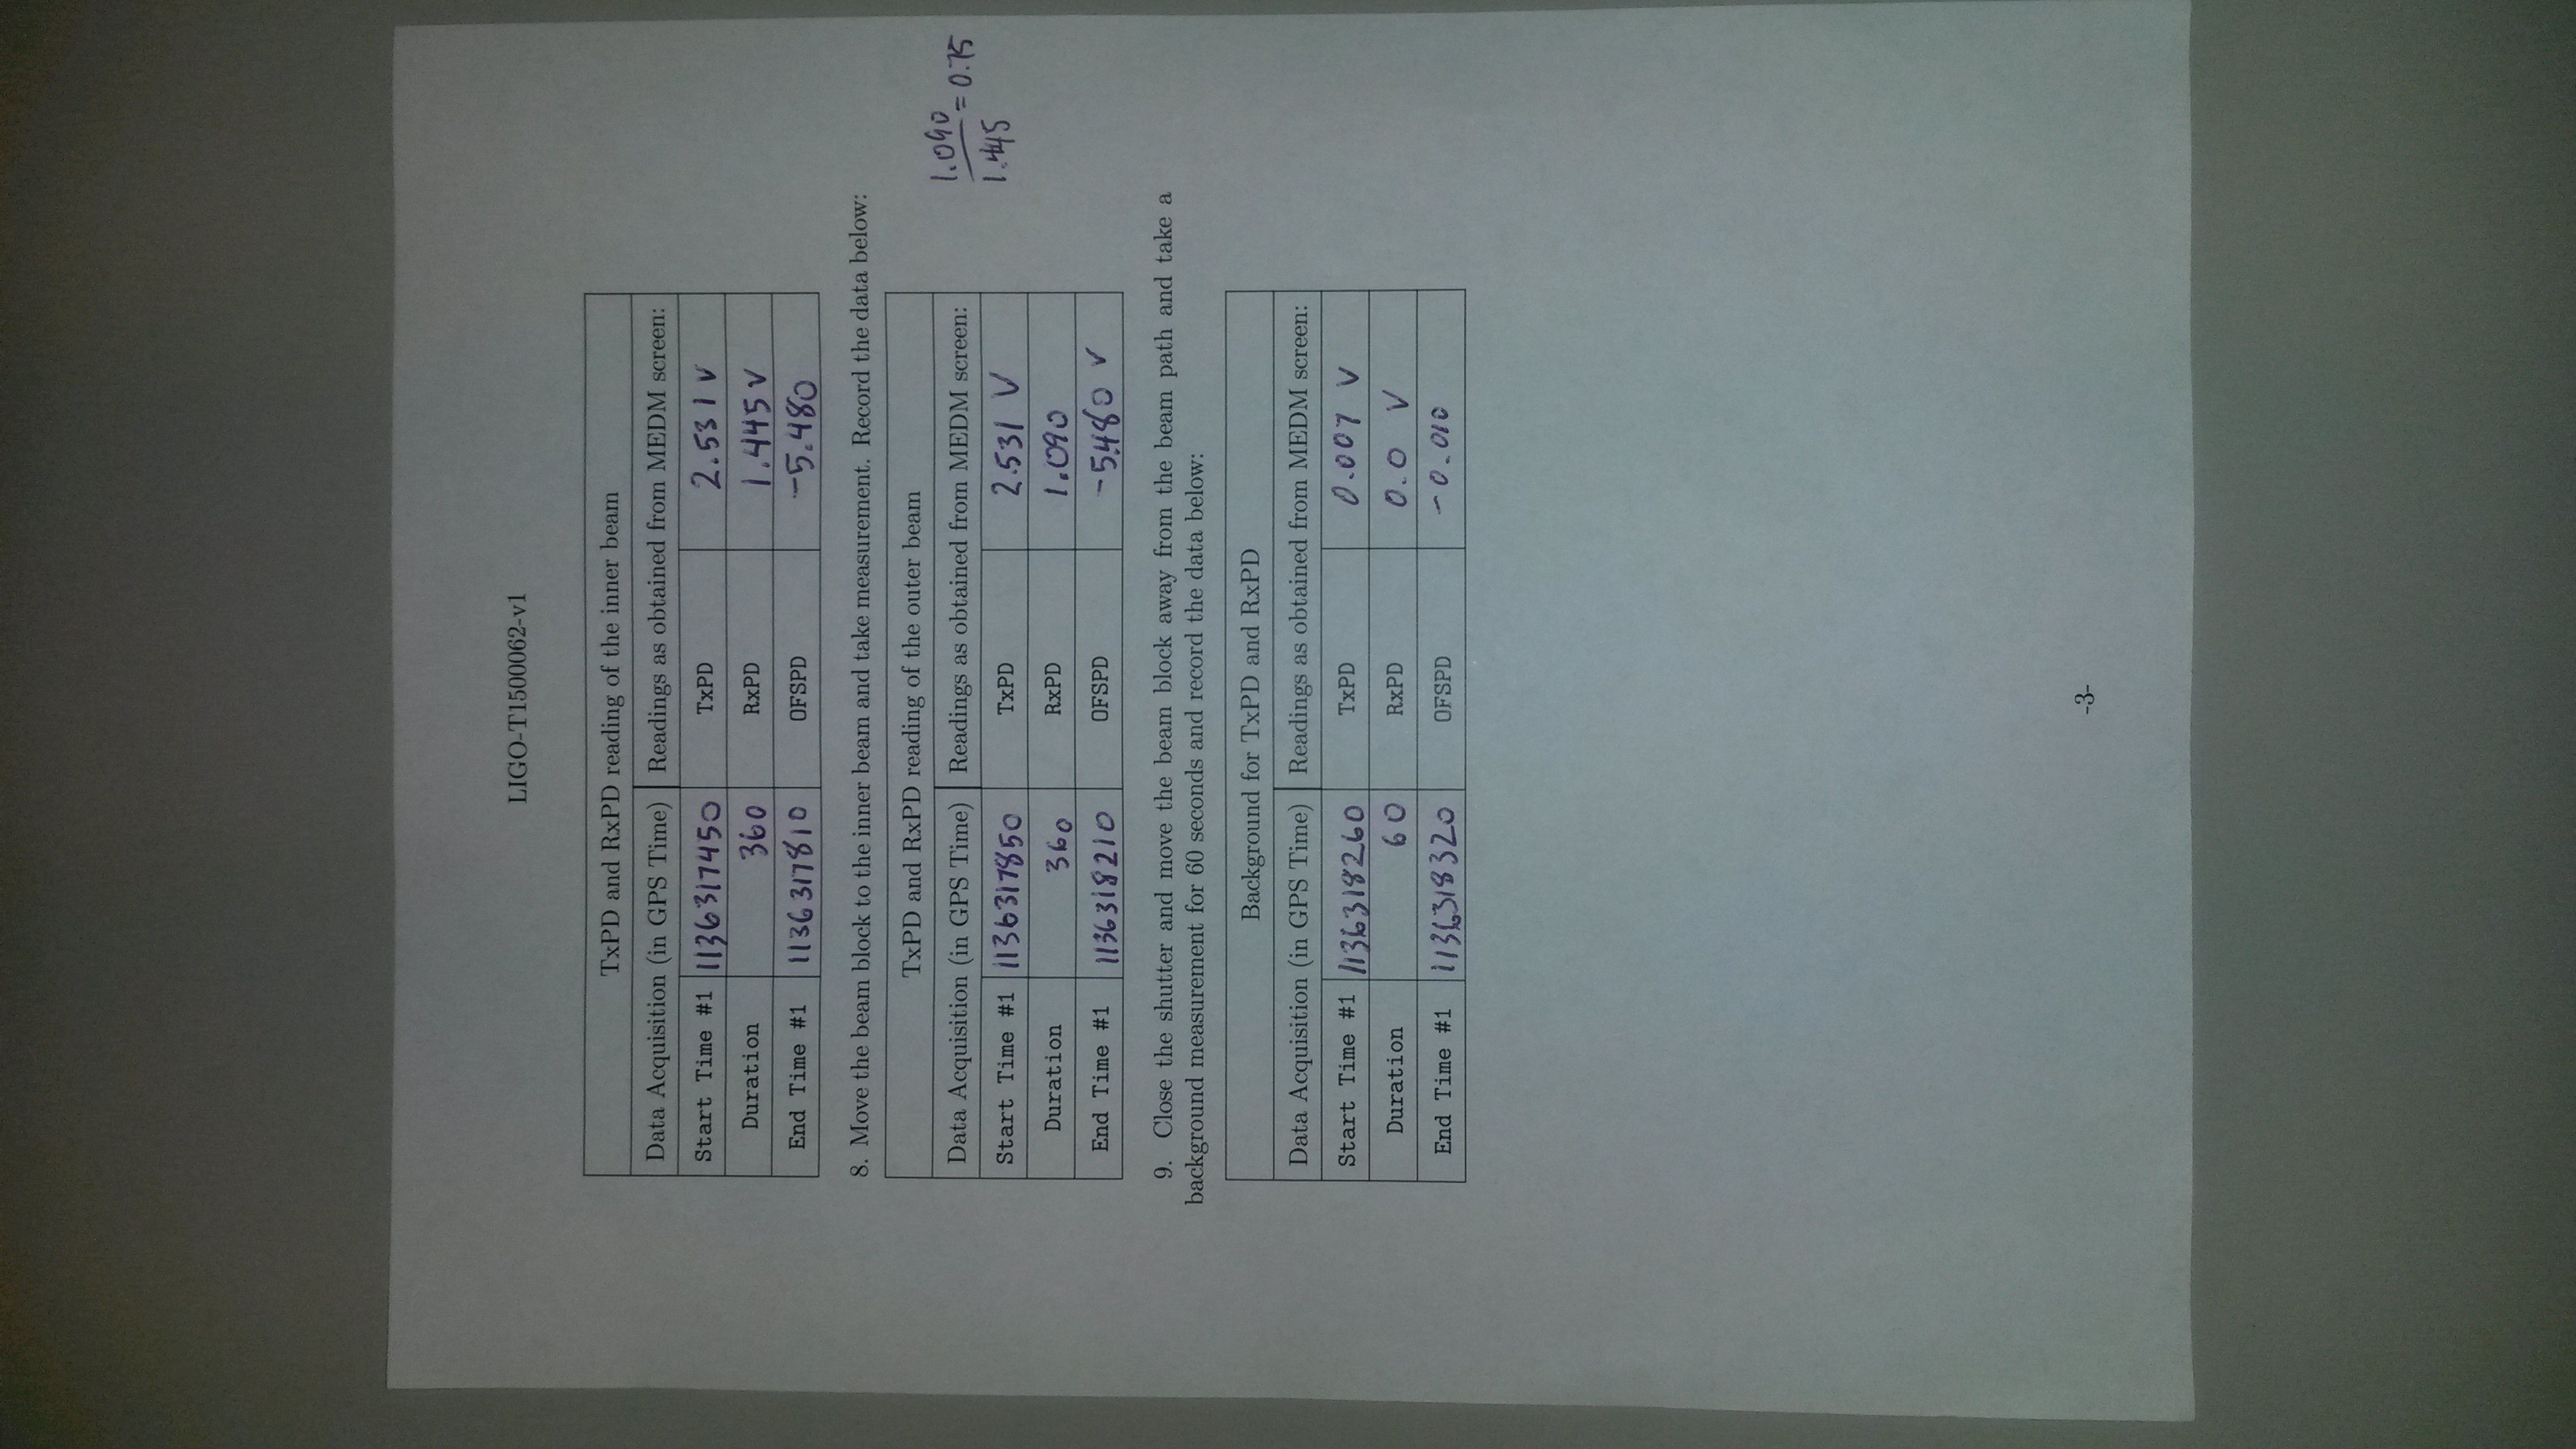 LIGO-T1500062-v1
TxPD and RxPD reading of the inner beam
Data Acquisition (in GPS Time) Readings as obtained from MEDM screen:
Start Time #1 1136317450 TxPD 2.531 V
Duration 360 RxPD 1.445 V
End Time #1 1136317810 OFSPD -5.480
8. Move the beam block to the inner beam and take measurement. Record the data below:
TxPD and RxPD reading of the outer beam
Data Acquisition (in GPS Time) Readings as obtained from MEDM screen:
Start Time #1 1136317850 TxPD 2.531 V
Duration 360 RxPD 1.090
End Time #1 1136318210 OFSPD -5.480 V
1.090
1.445 = 0.75
9. Close the shutter and move the beam block away from the beam path and take a
background measurement for 60 seconds and record the data below:
Background for TxPD and RxPD
Data Acquisition (in GPS Time) Readings as obtained from MEDM screen:
Start Time #1 1136318260 TxPD 0.007 V
Duration 60 RxPD 0.0 V
End Time #1 1136318320 OFSPD -0.010
-3-